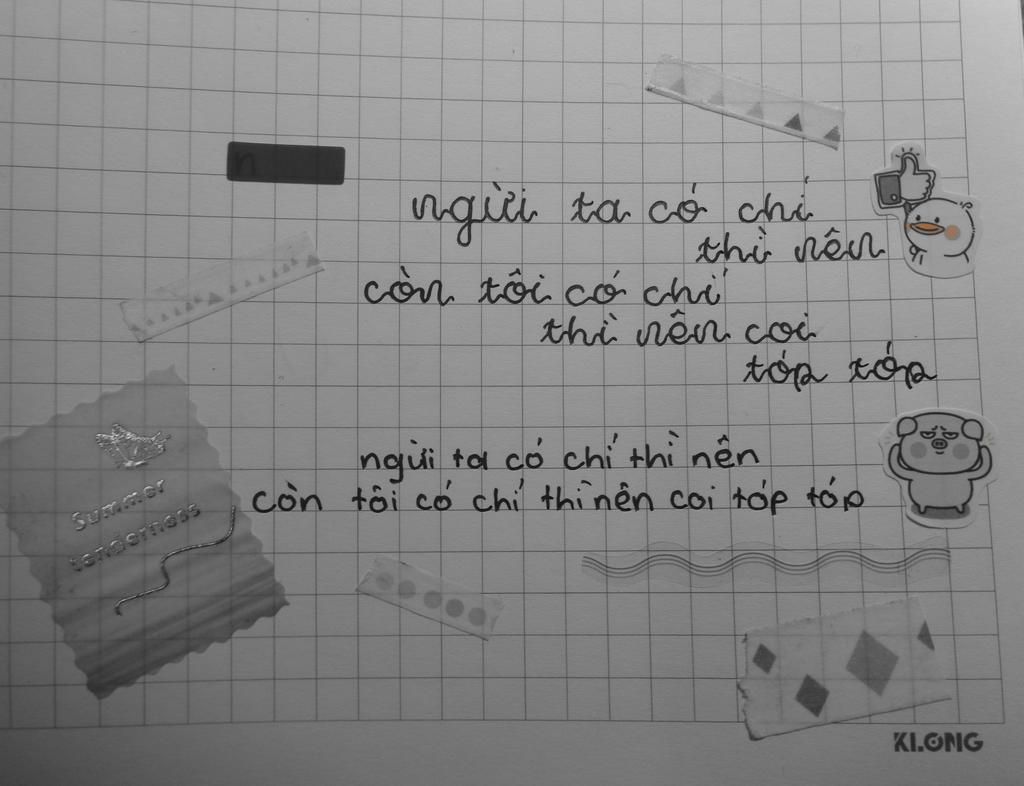 n
ngùi ta có chí
thì nên
còn tôi có chí
thì nên coi
tóp tóp
ngùi ta có chí thì nên
còn tôi có chí thì nên coi tóp tóp
Summer
tenderness
KLONG